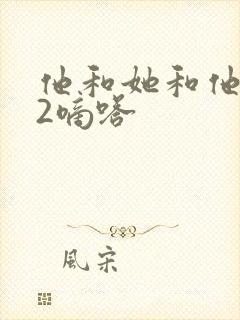 他和她和他
2嘀嗒
風宋